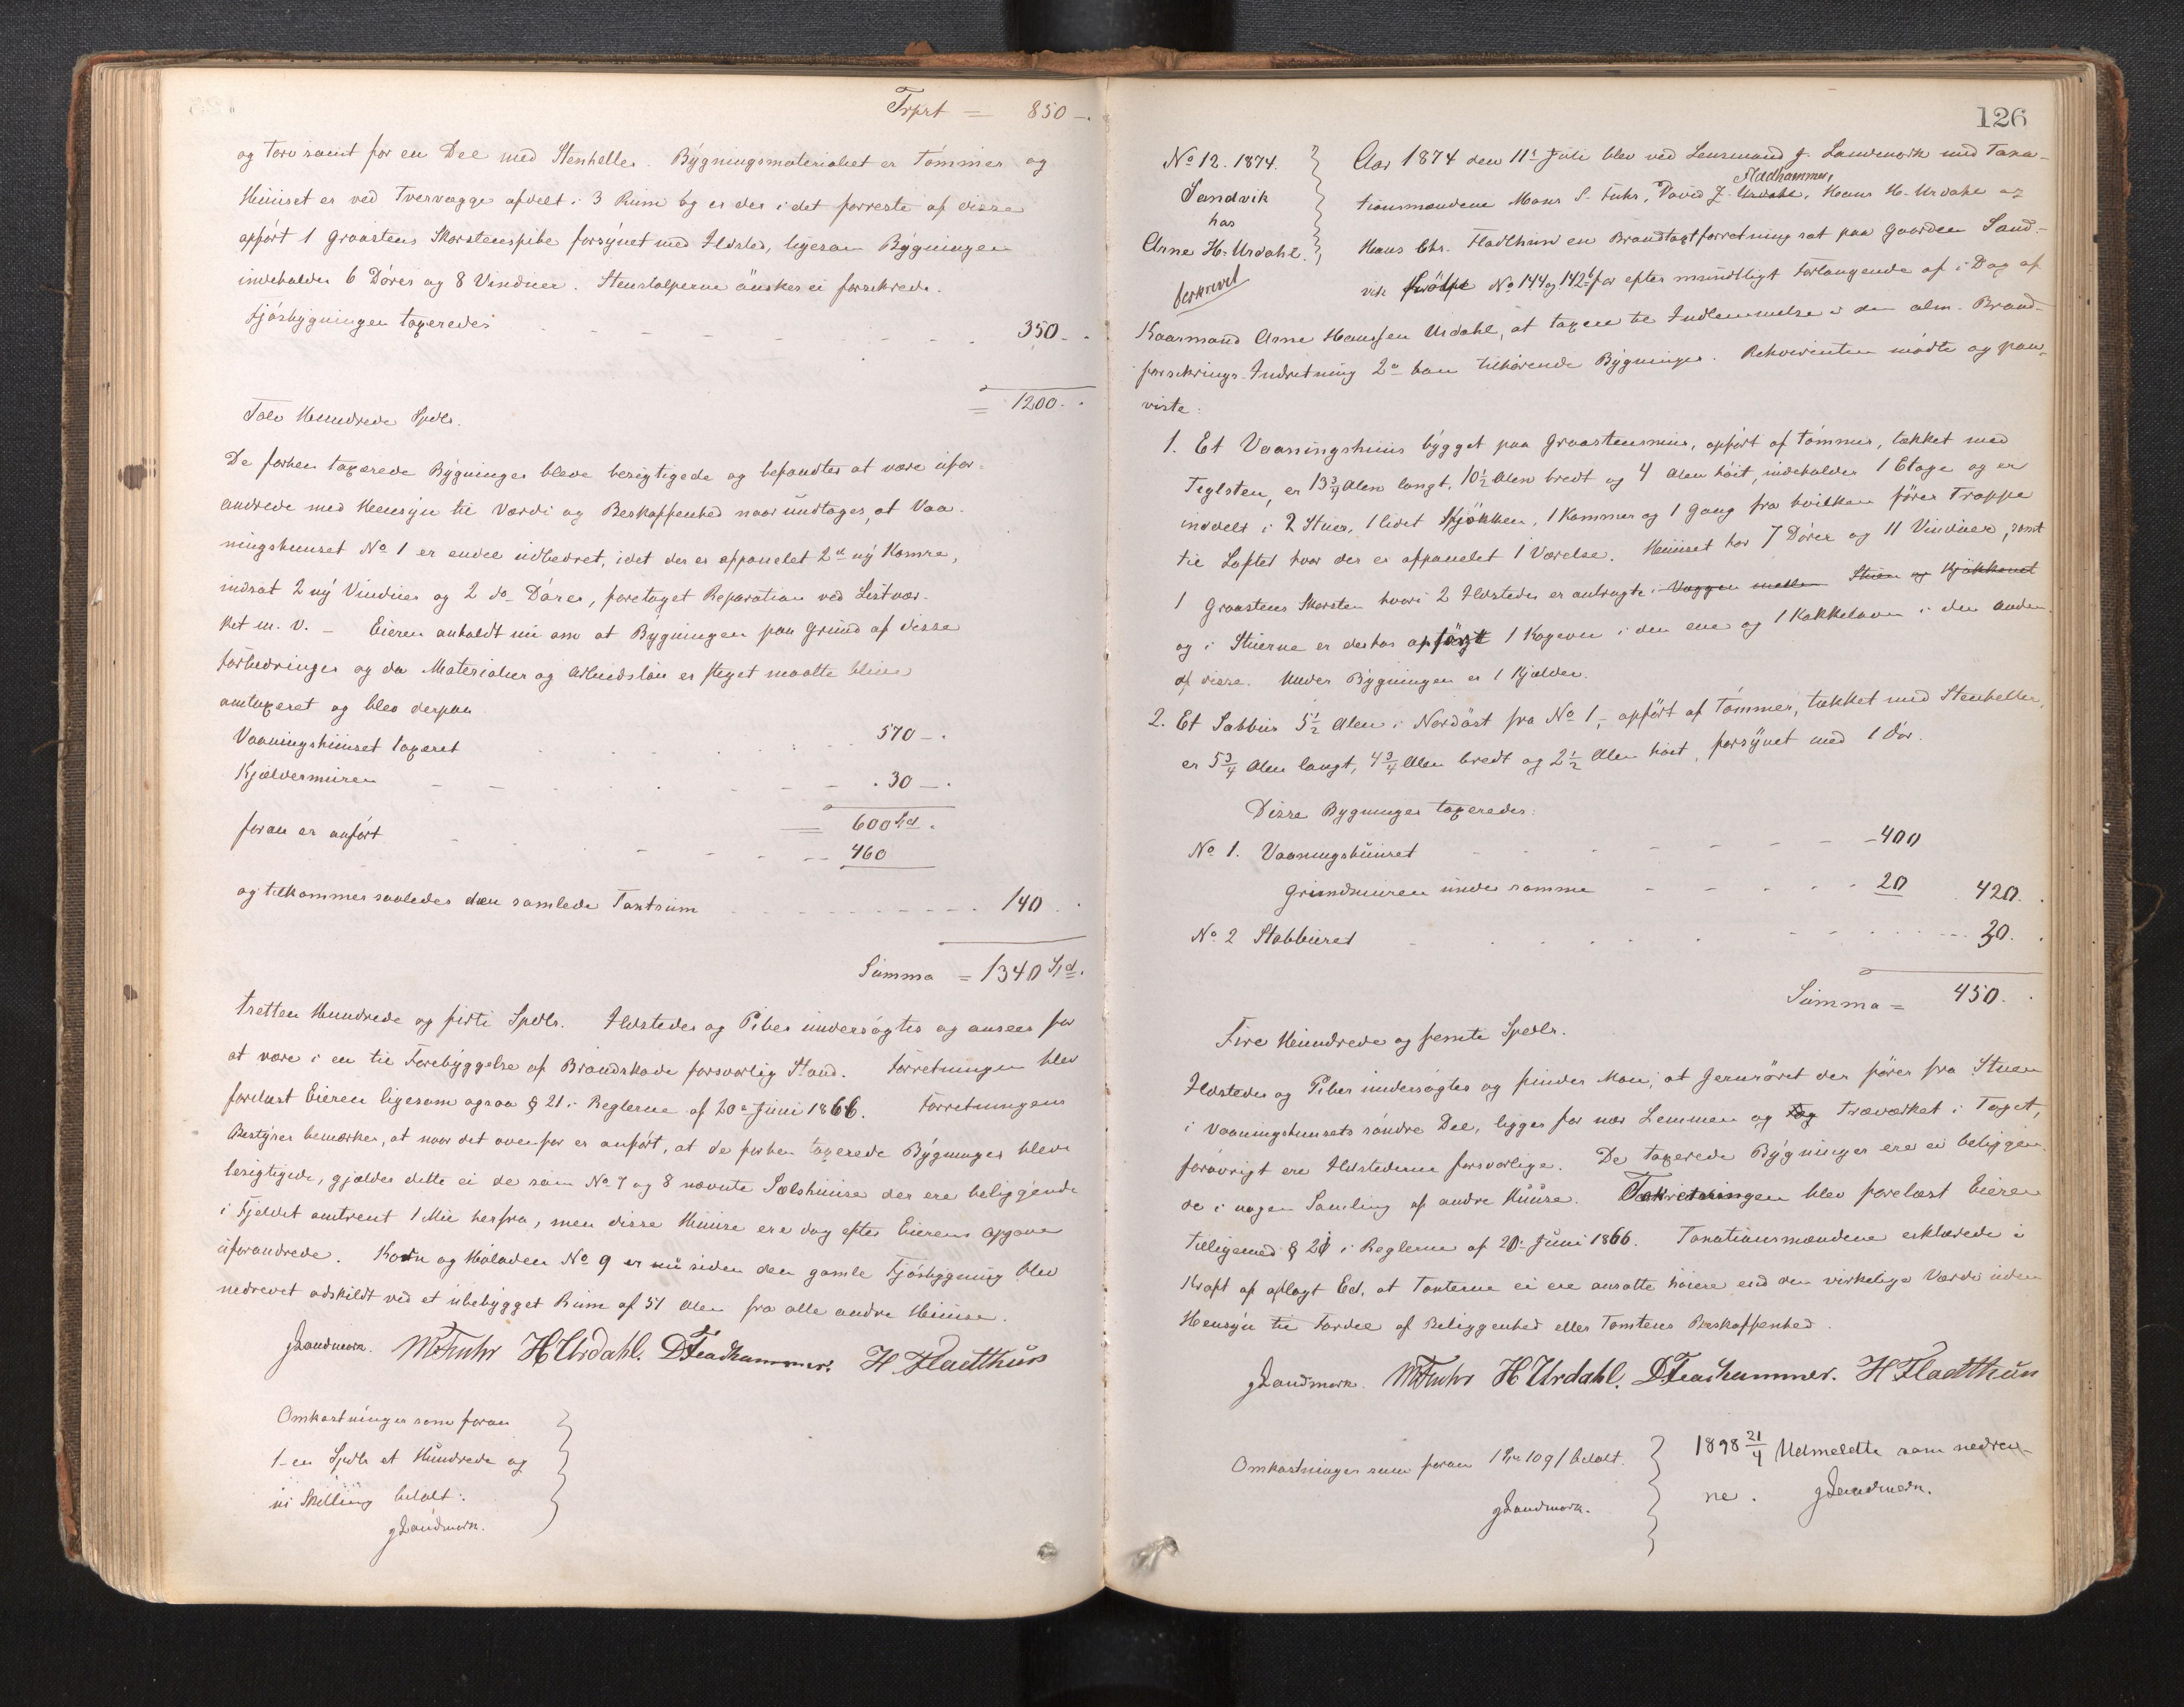 Trprt = 850 -.
og torv samt for en Del med Stenheller. Bygningsmaterialiet er Tømmer og
Huuset er ved Tvervægge afdelt i 3 Rum og er der i det forreste af disse
opført 1 Graastens Skorstenspibe forsynet med Ildsted, ligesom Bygningen
indeholder 6 Døres og 8 Vinduer. Stenstolperne ønskes ei forsikrede.
Fjøsbygningen taxeredes - - - - 350 -.
= 1200 -.
Tolv Hundrede Spdlr.
De forhen taxerede Bygninger bleve besigtigede og befandtes at være ufor-
andrede med Hensyn til Værdi og Beskaffenhed naar undtages, at Vaa-
ningshuuset No 1 er endel udbedret, idet der er oppanelet 2de ny Kamre,
indsat 2 ny Vinduer og 2 do Døres, foretaget Reparation ved Listvær-
ket m. v. - Eieren anholdt nu om at Bygningen paa Grund af disse
Forbedringer og da Materialier og Arbeidsløn er steget maatte blive
omtaxeret og blev derpaa
Vaaningshuuset taxeret . . . . 570 -.
Kjældermuren - - - . 30 -.
= 600 Spd.
foran er anført - - - 460
og tilkommer saaledes den samlede Taxtsum - - - 140 .
Summa = 1340 Spd.
tretten Hundrede og firti Spdlr. Ildsteder og Piber undersøgtes og ansees for
at være i en til Forebyggelse af Brandskade forsvarlig Stand. Forretningen blev
forelæst Eieren ligesom ogsaa § 21 i Reglerne af 20de Juni 1866. Forretningens
Bestyrer bemærker, at naar det ovenfor er anført, at de forhen taxerede Bygninger bleve
besigtigede, gjælder dette ei de som No 7 og 8 nævnte Sælshuuse der ere beliggende
i Fjeldet omtrent 1 Mil herfra, men disse Huuse ere dog efter Eierens Opgave
uforandrede. Korn og Høladen No 9 er nu siden den gamle Fjøsbygning blev
nedrevet adskildt ved et ubebygget Rum af 51 Alen fra alle andre Huuse.
JLandmark. MFuhr HUrdahl. DFladhammer. H Fladthun
Omkostninger som foran
1 - en Spdlr et Hundrede og
ni Skilling betalt:
JLandmark.
126
No 12. 1874.
Sandvik
hos
Arne H. Urdahl.
beskrevet
Aar 1874 den 11te Juli blev ved Lensmand J. Landmark med Taxa-
Fladhammer,
tionsmændene Mons S. Fuhr, David J. Urdahl, Hans H. Urdahl og
Hans Chr. Fladthun en Brandtaxtforretning sat paa Gaarden Sand-
vik No 144 og 142 b for efter mundtligt Forlangende af i Dag af
Kaarmand Arne Hanssen Urdahl, at taxere til Indlemmelse i den alm. Brand-
forsikrings-Indretning 2de ham tilhørende Bygninger. Rekvirenten mødte og paa-
viste:
1. Et Vaaningshuus bygget paa Graastensmuur, opført af Tømmer, tækket med
Teglsten, er 13¾ Alen langt, 10½ Alen bredt og 4 Alen høit, indeholder 1 Etage og er
inddelt i 2 Stuer, 1 lidet Kjøkken, 1 Kammer og 1 Gang fra hvilken fører Trappe
til Loftet hvor der er oppanelet 1 Værelse. Huuset har 7 Døres og 11 Vinduer, samt
1 Graastens Skorsten hvori 2 Ildsteder er anbragte i Væggen mellem Stuen og Kjøkkenet
og i Stuerne er desfor opført 1 Kogeovn i den ene og 1 Kakkelovn i den anden
af disse. Under Bygningen er 1 Kjælder.
2. Et Stabbur 5½ Alen i Nordøst fra No 1, opført af Tømmer, tækket med Stenheller,
er 5¾ Alen langt, 4¾ Alen bredt og 2½ Alen høit, forsynet med 1 Dør.
Disse Bygninger taxeredes:
No 1. Vaaningshuuset - - - - 400
Grundmuren under samme - - - 20 420 .
No 2 Stabburet - - - 30 .
Summa = 450 .
Fire Hundrede og femti Spdlr.
Ildsteder og Piber undersøgtes og finder Man, at Jernrøret der fører fra Stuen
i Vaaningshuusets søndre Del, ligger for nær Lemmen og Træværket i Taget,
forøvrigt ere Ildstederne forsvarlige. De taxerede Bygninger ere ei beliggen-
de i nogen Samling af andre Huuse. Forretningen blev forelæst Eieren
tilligemed § 21 i Reglerne af 20de Juni 1866. Taxationsmændene erklærede i
Kraft af aflagt Ed, at Taxterne ei ere ansatte høiere end den virkelige Værdi uden
Hensyn til Fordel af Beliggenhed eller Tomtens Beskaffenhed.
JLandmark. MFuhr HUrdahl. DFladhammer. H Fladthun
Omkostninger som foran 1 Spd 109 / betalt.
JLandmark.
1898 21/4 Udmeldte som nedrev-
ne. JLandmark.